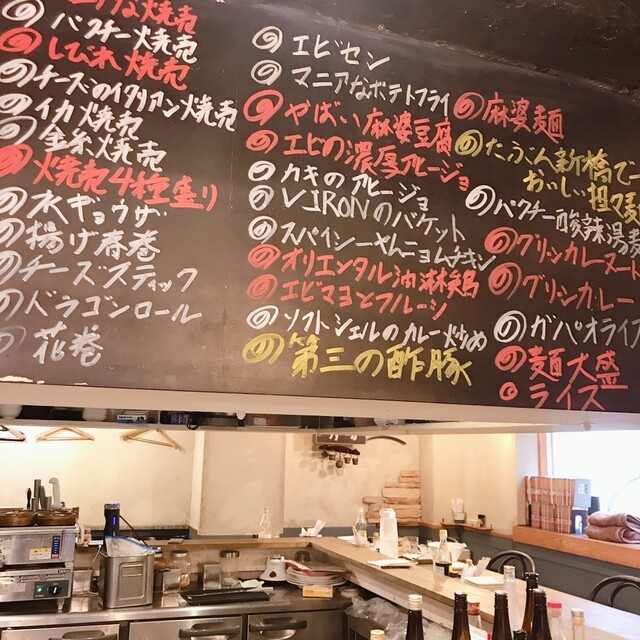 焼売
パクチー焼売
しびれ焼売
チーズのイタリアン焼売
イカ焼売
金糸焼売
焼売4種盛り
水ギョウザ
揚げ春巻
チーズスティック
ドラゴンロール
花巻
エビセン
マニアなポテトフライ
やばい麻婆豆腐
エビの濃厚アヒージョ
カキのアヒージョ
VIRONのバケット
スパイシーヤムニョムチキン
オリエンタル油淋鶏
エビマヨとフルーツ
ソフトシェルのカレー炒め
第三の酢豚
麻婆麺
たぶん新橋で一
おいしい担々麺
パクチー酸辣湯麺
グリーンカレーヌードル
グリーンカレー
ガパオライス
麺大盛
ライス